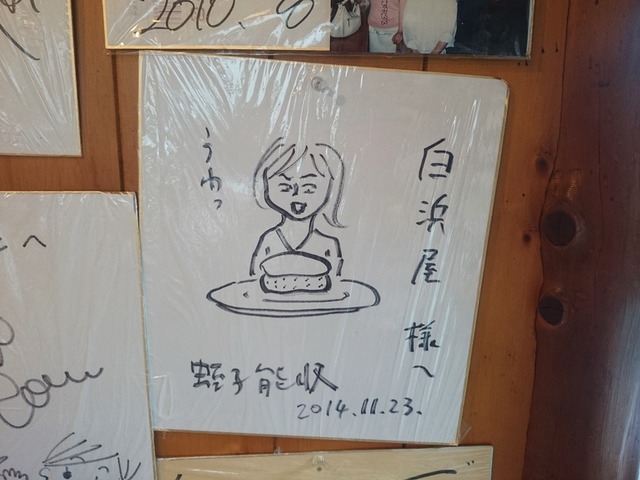 2010.8
白浜屋 様へ
うわっ
蛭子能収
2014.11.23.
へ